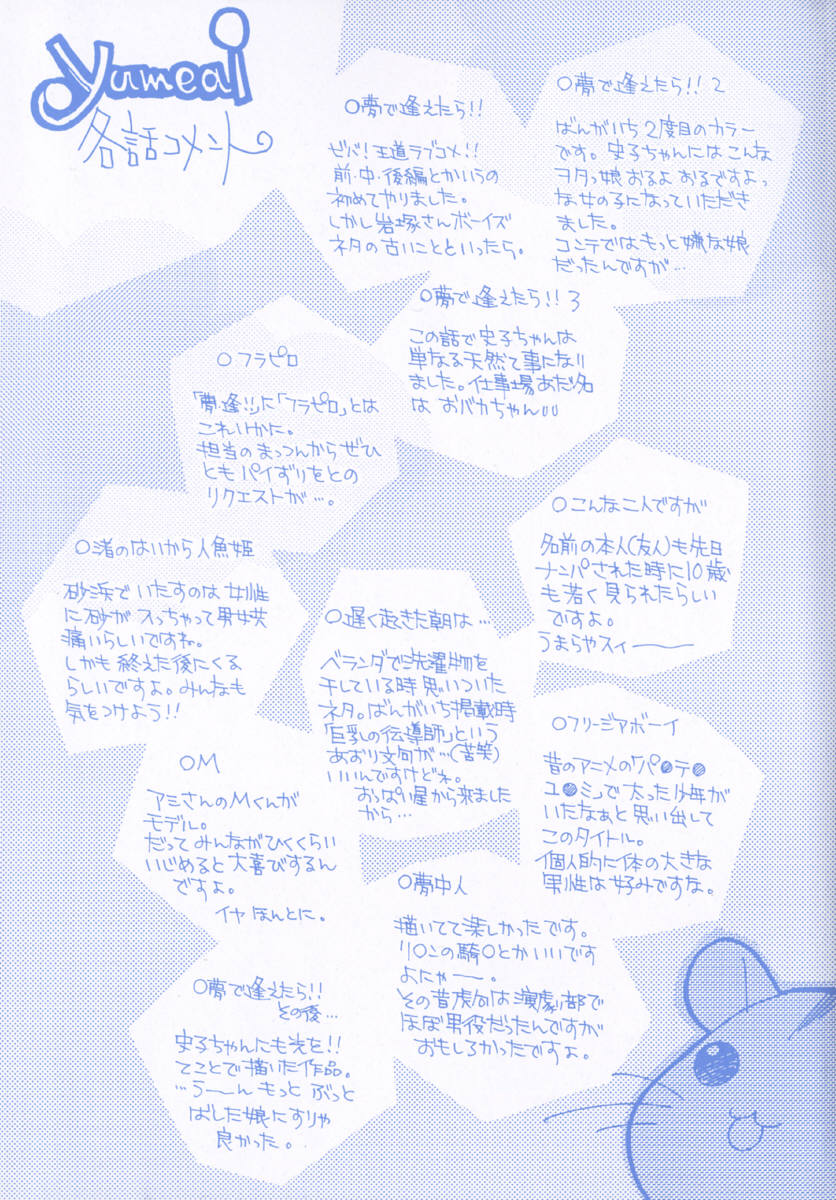 yumeai
各話コメント
○夢で逢えたら!!
ビバ!王道ラブコメ!!
前・中・後編とかいうの
初めてやりました。
しかし岩塚さんボーイズ
ネタの古いことといったら。
○夢で逢えたら!! 2
ばんがいち2度目のカラー
です。史子ちゃんにはこんな
ヲタっ娘おるよおるですよっ
な女の子になっていただき
ました。
コンテではもっと嫌な娘
だったんですが…
○夢で逢えたら!! 3
この話で史子ちゃんは
単なる天然て事になり
ました。仕事場あだ名
は おバカちゃん
○フラピロ
「夢・逢!!」に「フラピロ」とは
これいかに。
担当のまっつんからぜひ
ともパイずりをとの
リクエストが…。
○こんな二人ですが
名前の本人(友人)も先日
ナンパされた時に10歳
も若く見られたらしい
ですよ。
うまらやスィーーー
○渚のはいから人魚姫
砂浜でいたすのは女性
に砂が入っちゃって男女共
痛いらしいですね。
しかも終えた後にくる
らしいですよ。みんなも
気をつけよう!!
○遅く起きた朝は…
ベランダで洗濯物を
干している時思いついた
ネタ。ばんがいち掲載時
「巨乳の伝導師」という
あおり文句が…(苦笑)
いいんですけどね。
おっぱい星から来ました
から…
○フリージアボーイ
昔のアニメの「パ●テ●
ユ●ミ」で太った少年が
いたなぁと思い出して
このタイトル。
個人的に体の大きな
男性は好みですな。
○M
アミさんのMくんが
モデル。
だってみんながひくくらい
いじめると大喜びするん
ですよ。
イヤ ほんとに。
○夢中人
描いてて楽しかったです。
リ○ンの騎○とかいいです
よにゃー。
その昔虎向は演劇部で
ほぼ男役だったんですが
おもしろかったですよ。
○夢で逢えたら!!
その後…
史子ちゃんにも光を!!
てことで描いた作品。
…うーん もっと ぶっと
ばした娘にすりゃ
良かった。